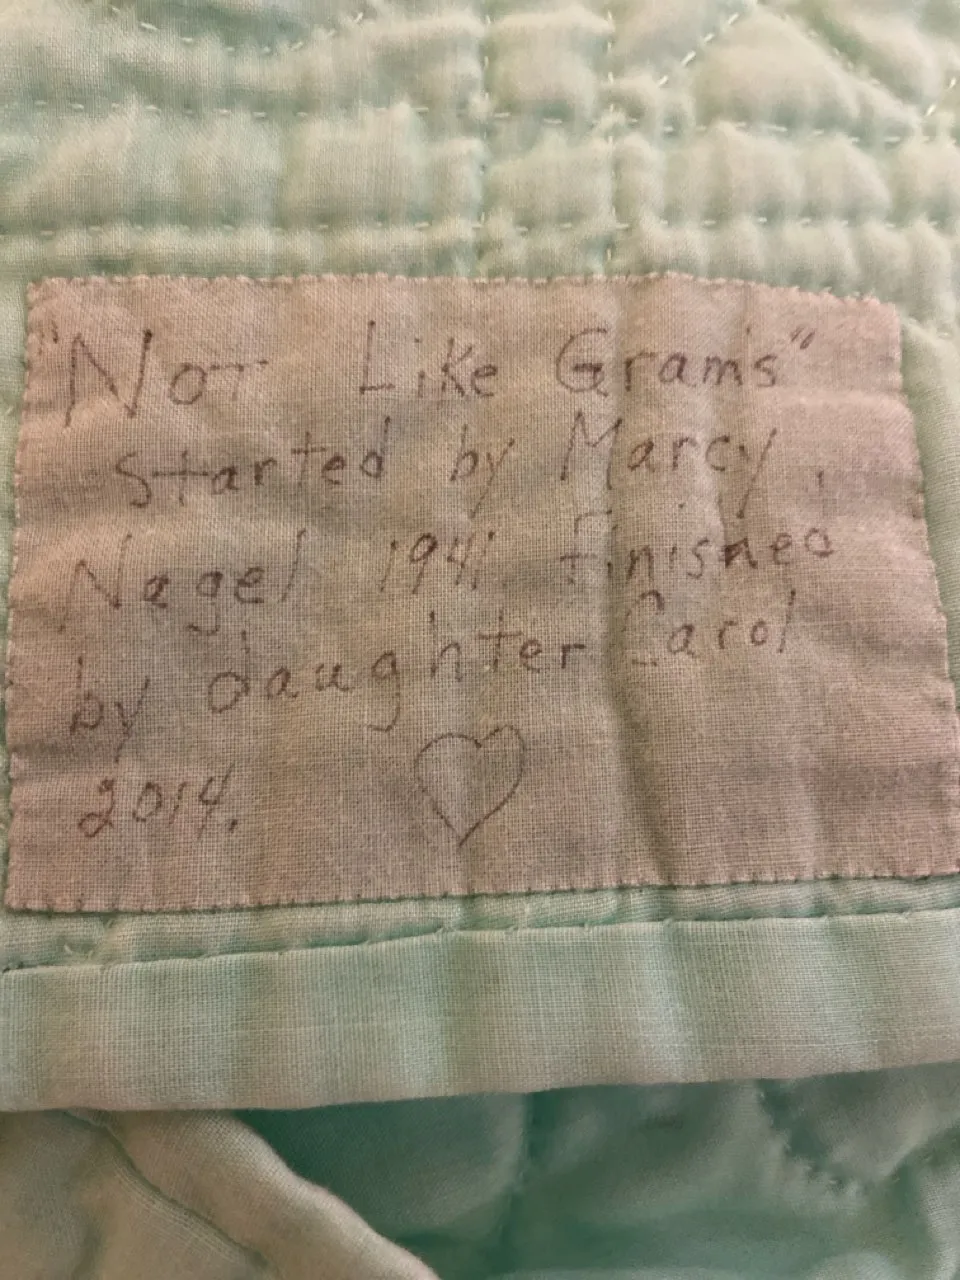 "Not Like Grams"
Started by Marcy
Nagel 1941 finished
by daughter Carol
2014.